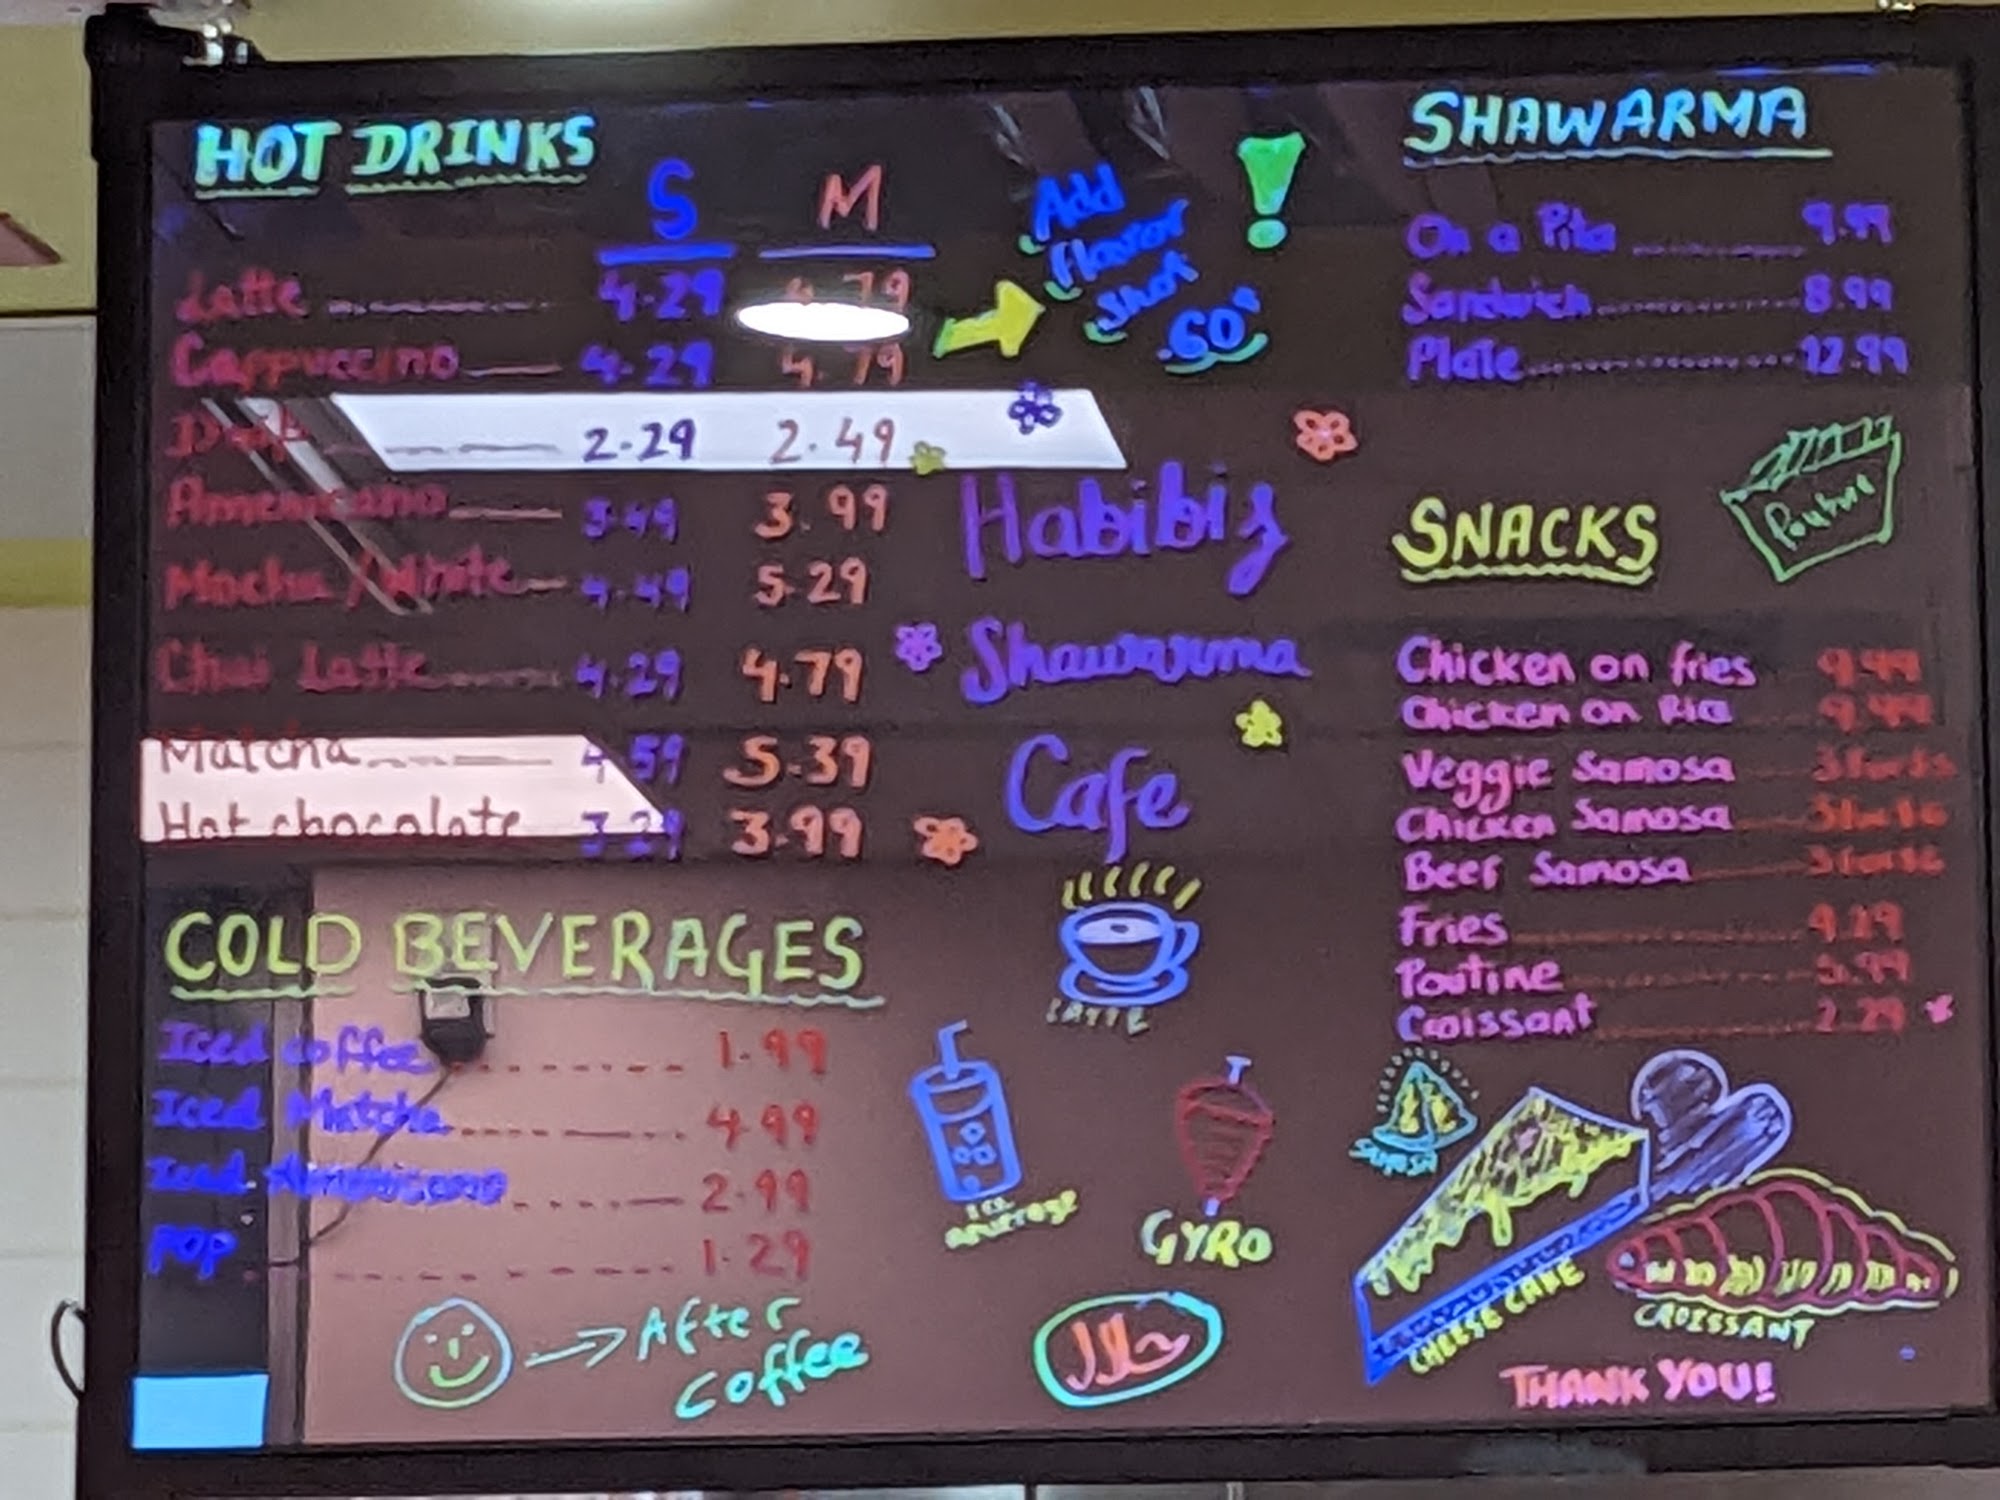 HOT DRINKS
S M
Latte 4.29 4.79
Cappuccino 4.29 4.79
Drip 2.29 2.49
Americano 3.49 3.99
Mocha/White 4.49 5.29
Chai Latte 4.29 4.79
Matcha 4.59 5.39
Hot chocolate 3.29 3.99
Add
flavor
shot
.60
!
COLD BEVERAGES
Iced coffee 1.99
Iced Matcha 4.99
Iced Americano 2.99
POP 1.29
After
coffee
Habibiz
Shawarma
Cafe
LATTE
GYRO
SHAWARMA
On a Pita 9.99
Sandwich 8.99
Plate 12.99
SNACKS
Poutine
Chicken on fries 9.49
Chicken on Rice
Veggie Samosa
Chicken Samosa
Beef Samosa
Fries
Poutine 5.99
Croissant 2.29
SAMOSA
CHEESE CAKE
CROISSANT
THANK YOU!